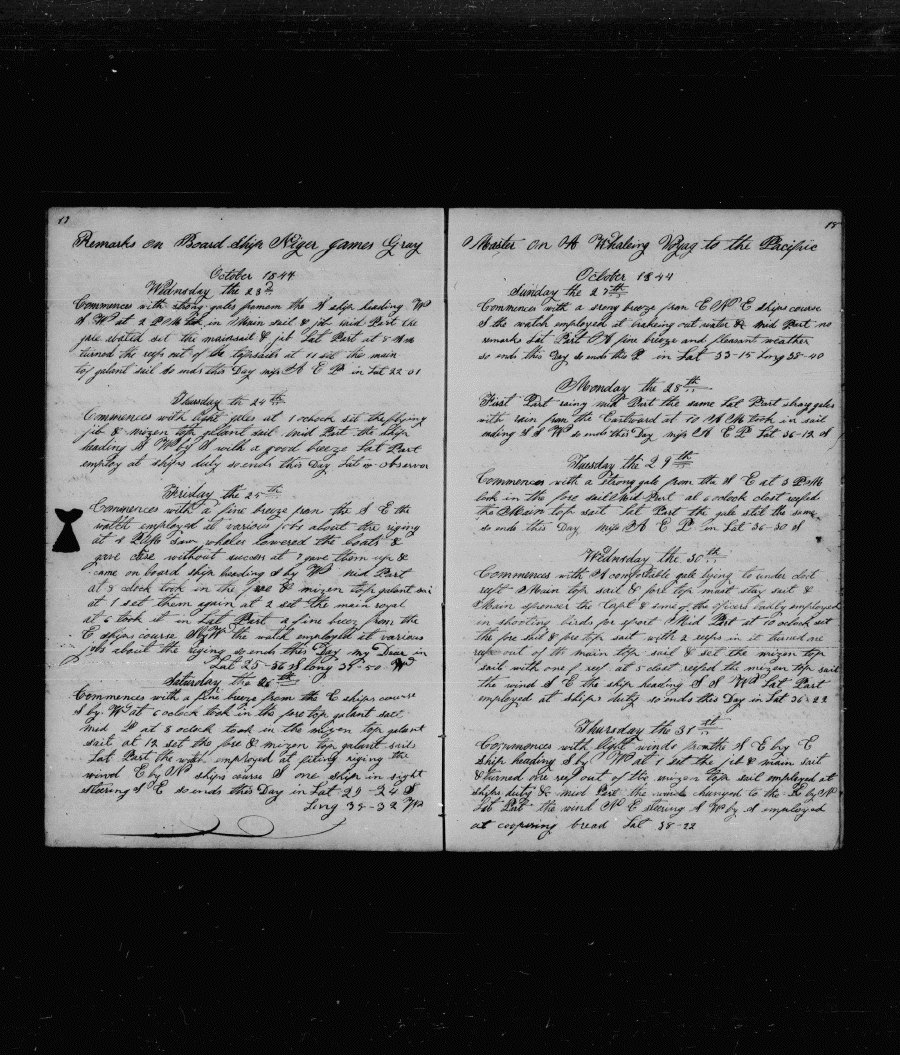 17
Remarks on Board Ship Niger James Gray
October 1844
Wednesday the 23d
Commences with strong gales from the S ship heading W
S W at 2 P M took in Main sail & jib Mid Part the
gale abated set the mainsail & jib Lat Part at 8 A M
turned the reefs out of the topsails at 11 set the main
top galant sail So ends this Day A E P in Lat 22 01
Thursday the 24th
Commences with light gales at 1 oclock set the flying
jib & mizen top galant sail Mid Part the ship
heading S W by S with a good breeze Lat Part
employ at ships duty so ends this Day Lat
Friday the 25th
Commences with a fine breeze from the S E the
watch employed at various jobs about the riging
at 4 P M saw whales lowered the boats &
gave without success at 7 gave them up &
came on board ship heading S by W Mid Part
at 8 oclock took in the fore & mizen top galant
at 1 set them again at 2 set the main royal
at 6 took it in Lat Part a fine breez from the
E ships course S by W the watch employed at various
jobs about the riging so ends this Day my Dear in
Lat 25-36 S long 37-50 W
Saturday the 26th
Commences with a fine breeze from the E ships course
S by W at 6 oclock took in the fore top galant sail
Mid P at 8 oclock took in the mizen top galant
sail at 12 set the fore & mizen top galant sails
Lat Part the watch employed at fiting riging the
wind E by N ships course S one ship in sight
steering S E so ends this Day in Lat 29-24 S
Long 38-32 W
18
Master on A Whaleing Voyag to the Pacific
October 1844
Sunday the 27th
Commences with a strong breeze from E N E ships course
S the watch employed at brakeing out water & Mid Part no
remarks Lat Part A fine breeze and pleasant weather
so ends this Day so ends this P in Lat 33-15 Long 38-40
Monday the 28th
First Part raing Mid Part the same Lat Part sharp gales
with rain from the Eastward at 10 A M took in sail
making S S W so ends this Day A E P Lat 36-12 S
Tuesday the 29th
Commences with a strong gale from the S E at 3 P M
took in the fore sail Mid Part at 6 oclock closet reefed
the Main top sail Lat Part the gale still the same
so ends this Day A E P in Lat 36-30 S
Wednesday the 30th
Commences with A comfortable gale lying to under closet
reeft Main top sail & fore top mast stay sail &
Main spencer the Capt & some of the oficers buily employed
in shooting birds for sport Mid Part at 10 oclock set
the fore sail & fore top sail with 2 reefs in it turned one
reef out of the main top sail & set the mizen top
sail with one reef at 5 closet reefed the mizen top sail
the wind S E the ship heading S S W Lat Part
employed at ships duty so ends this Day in Lat 36-22
Thursday the 31st
Commences with light winds from the S E by E
Ship heading S by W at 1 set the jib & main sail
& turned one reef out of the mizen top sail employed at
ships duty & Mid Part the winds changed to the E by N
Lat Part the wind N E steering S W by S employed
at coopering bread Lat 38-22